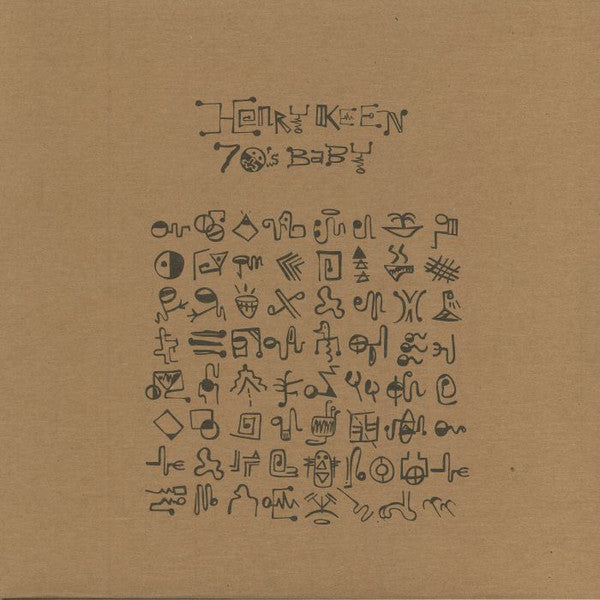 HENRY KEEN
70's BABY